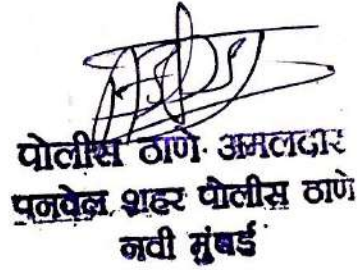 पोलीस ठाणे अमलदार
पनवेल शहर पोलीस ठाणे
नवी मुंबई